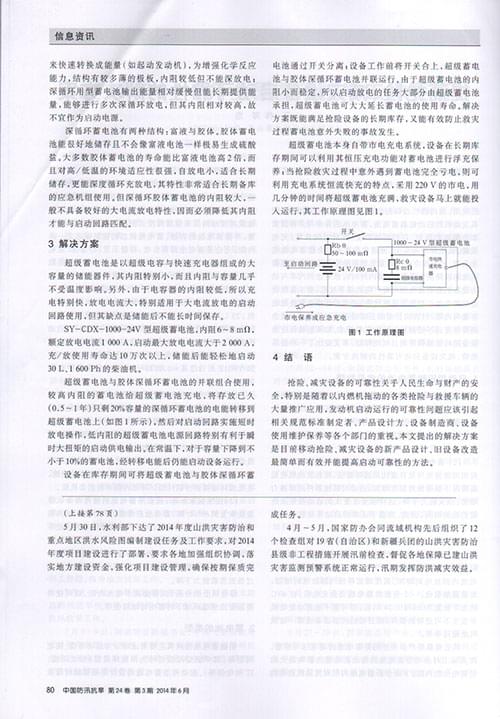 信息资讯
来快速转换成能量(如起动发动机),为增强化学反应
能力,结构有较多薄的极板,内阻较低但不能深放电;
深循环用型蓄电池输出能量相对缓慢但能长期提供能
量,能够进行多次深循环放电,但其内阻相对较高,故
不宜作为启动电源。
深循环蓄电池有两种结构:富液与胶体。胶体蓄电
池能很好地储存且不会像富液电池一样极易生成硫酸
盐。大多数胶体蓄电池的寿命能比富液电池高2倍,而
且对高/低温的环境适应性很强,自放电小,适合长期
储存,更能深度循环充放电,其特性非常适合长期备库
的应急机组使用,但深循环胶体蓄电池的内阻较大,一
般不具备较好的大电流放电特性,因而必须降低其内阻
才能与启动回路匹配。
3 解决方案
超级蓄电池是以超级电容与快速充电器组成的大
容量的储能器件,其内阻特别小,而且内阻与容量几乎
不受温度影响。另外,由于电容器的内阻较低,所以充
电特别快,放电电流大,特别适用于大电流放电的启动
回路使用,但其缺点是储能后不能长时间保存。
SY-CDX-1000-24V型超级蓄电池,内阻6~8 mΩ,
额定放电电流1 000 A,启动最大放电电流大于2 000 A,
充/放使用寿命达10万次以上,储能后能轻松地启动
30 L、1 600 Ph的柴油机。
超级蓄电池与胶体深循环蓄电池的并联组合使用,
较高内阻的蓄电池给超级蓄电池充电,将存放已久
(0.5~1年)只剩20%容量的深循环蓄电池的电能转移到
超级蓄电池上(如图1所示),然后对启动回路实施短时
放电操作,低内阻的超级蓄电池电源回路特别有利于瞬
时大扭矩的启动供电输出。在常温下,对于容量下降到不
小于10%的蓄电池,经转移电能后仍能启动设备运行。
设备在库存期间可将超级蓄电池与胶体深循环蓄
电池通过开关分离;设备工作前将开关合上,超级蓄电
池与胶体深循环蓄电池并联运行。由于超级蓄电池的内
阻小而稳定,所以启动放电的任务大部分由超级蓄电池
承担,超级蓄电池可大大延长蓄电池的使用寿命。解决
方案既能满足抢险设备的长期库存,又能有效防止救灾
过程蓄电池意外失败的事故发生。
超级蓄电池本身自带市电充电系统,设备在长期库
存期间可以利用其恒压充电功能对蓄电池进行浮充保
养;当抢险救灾过程中意外遇到蓄电池完全亏电,则可
利用充电系统恒流快充的特点,采用220 V的市电,用
几分钟的时间将超级蓄电池充满,救灾设备马上就能投
入运行,其工作原理图见图1。
开关
1000-24 V型超级蓄电池
至启动回路
24 V/100 mA
市电保养或应急充电
图1 工作原理图
4 结 语
抢险、减灾设备的可靠性关乎人民生命与财产的安
全,特别是随着以内燃机拖动的各类抢险与救援车辆的
大量推广应用,发动机启动运行的可靠性问题应该引起
相关规范标准制定者、产品设计方、设备制造商、设备
使用维护保养等各个部门的重视。本文提出的解决方案
是目前移动抢险、减灾设备的新产品设计、旧设备改造
最简单而有效并能提高启动可靠性的方法。
(上接第78页)
5月30日,水利部下达了2014年度山洪灾害防治和
重点地区洪水风险图编制建设任务及工作要求,对2014
年度项目建设进行了部署,要求各地加强组织协调,落
实地方建设资金,强化项目建设管理,确保按期保质完
成任务。
4月~5月,国家防办会同流域机构先后组织了12
个检查组对19省(自治区)和新疆兵团的山洪灾害防治
县级非工程措施开展汛前检查,督促各地保障已建山洪
灾害监测预警系统正常运行,汛期发挥防洪减灾效益。
80 中国防汛抗旱 第24卷 第3期 2014年6月